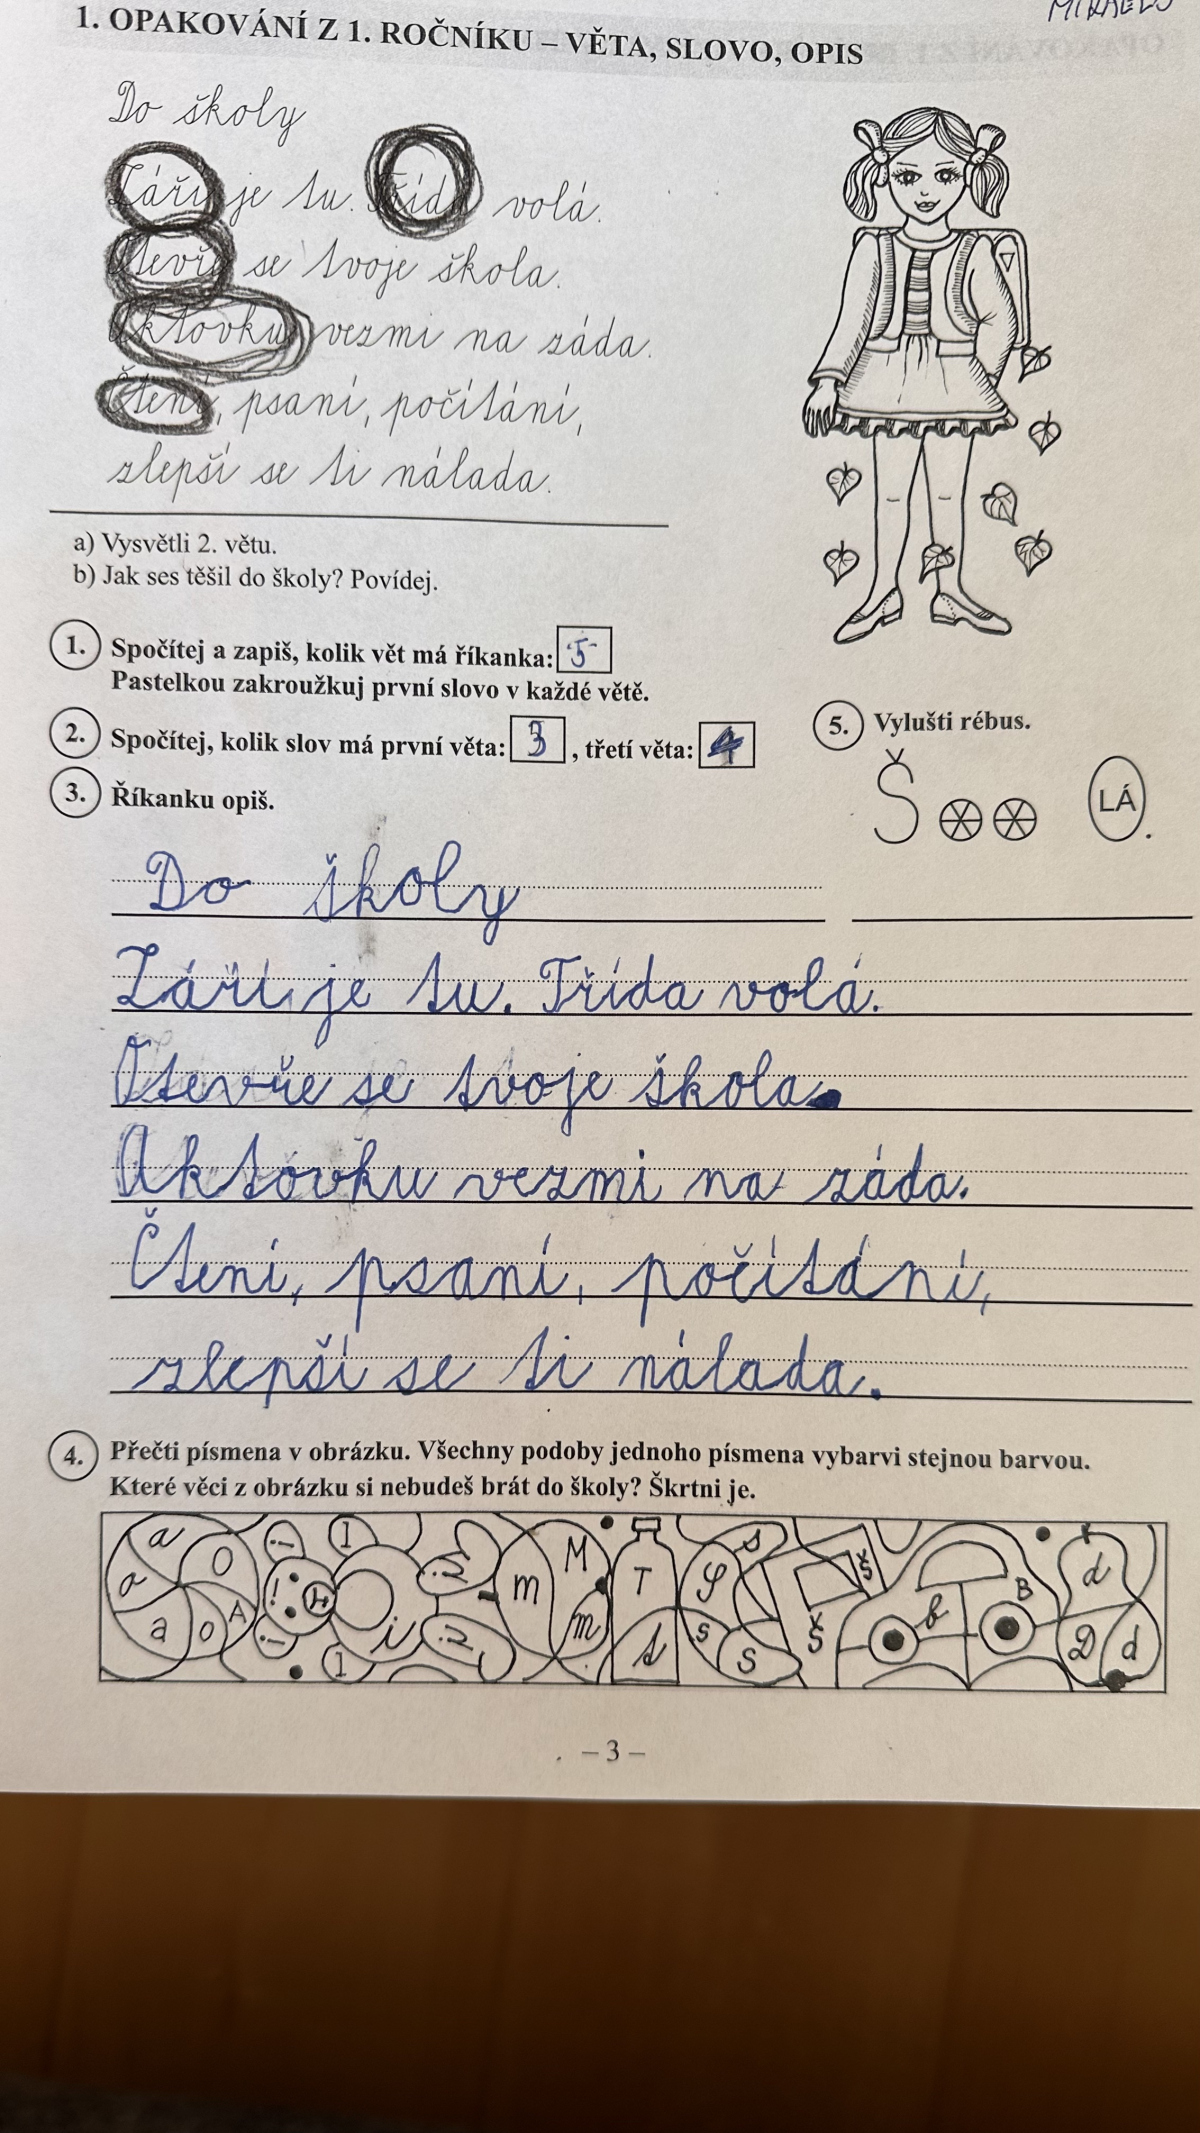 MIKAEL
1. OPAKOVÁNÍ Z 1. ROČNÍKU – VĚTA, SLOVO, OPIS
Do školy
Září je tu. Třída volá.
Otevře se tvoje škola.
Aktovku vezmi na záda.
Čtení, psaní, počítání,
zlepší se ti nálada.
a) Vysvětli 2. větu.
b) Jak ses těšil do školy? Povídej.
1. Spočítej a zapiš, kolik vět má říkanka: 5
Pastelkou zakroužkuj první slovo v každé větě.
2. Spočítej, kolik slov má první věta: 3, třetí věta: 4
5. Vylušti rébus.
Š LÁ.
3. Říkanku opiš.
Do školy
Září je tu. Třída volá.
Otevře se tvoje škola.
Aktovku vezmi na záda.
Čtení, psaní, počítání,
zlepší se ti nálada.
4. Přečti písmena v obrázku. Všechny podoby jednoho písmena vybarvi stejnou barvou.
Které věci z obrázku si nebudeš brát do školy? Škrtni je.
a a a o o A i I i I i i i m M m T t S s s s Š Š b B d D d
– 3 –